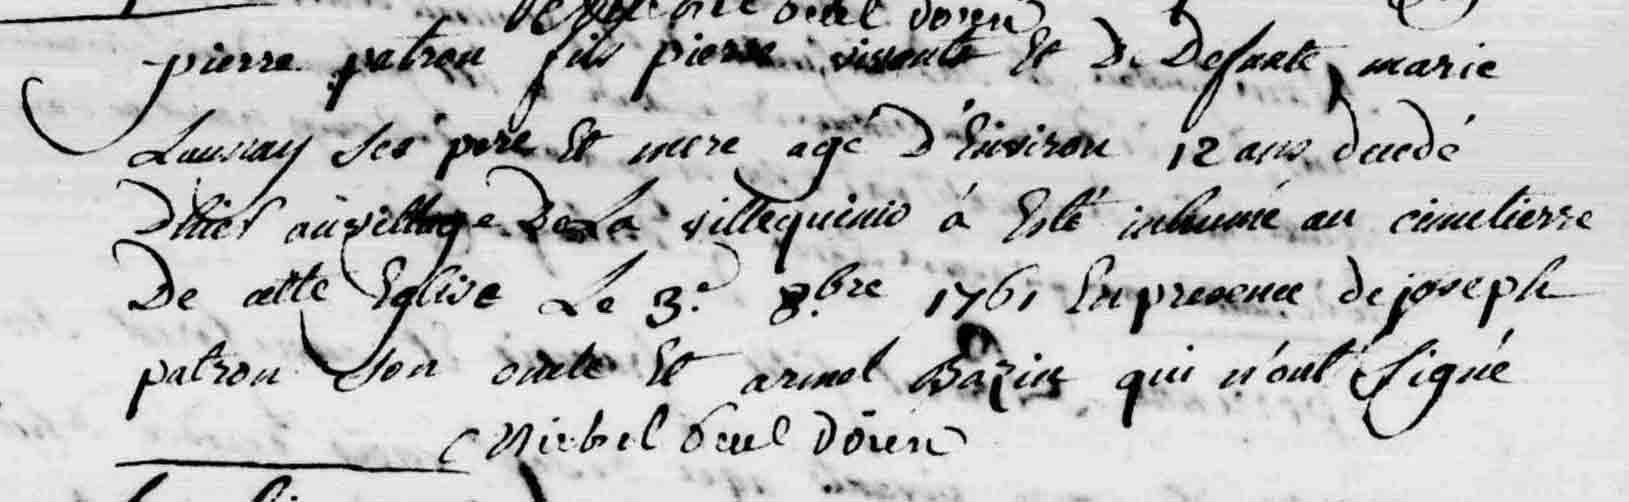 pierre patron fils pierre vivant Et De Defunte marie
Launay ses pere Et mere agé D'Environ 12 ans decedé
D'hier au village De La villequinio à Esté inhumé au cimetierre
De cette Eglise Le 3.e 8.bre 1761 En presence de joseph
patron son oncle Et armel Bazin qui n'ont Signé